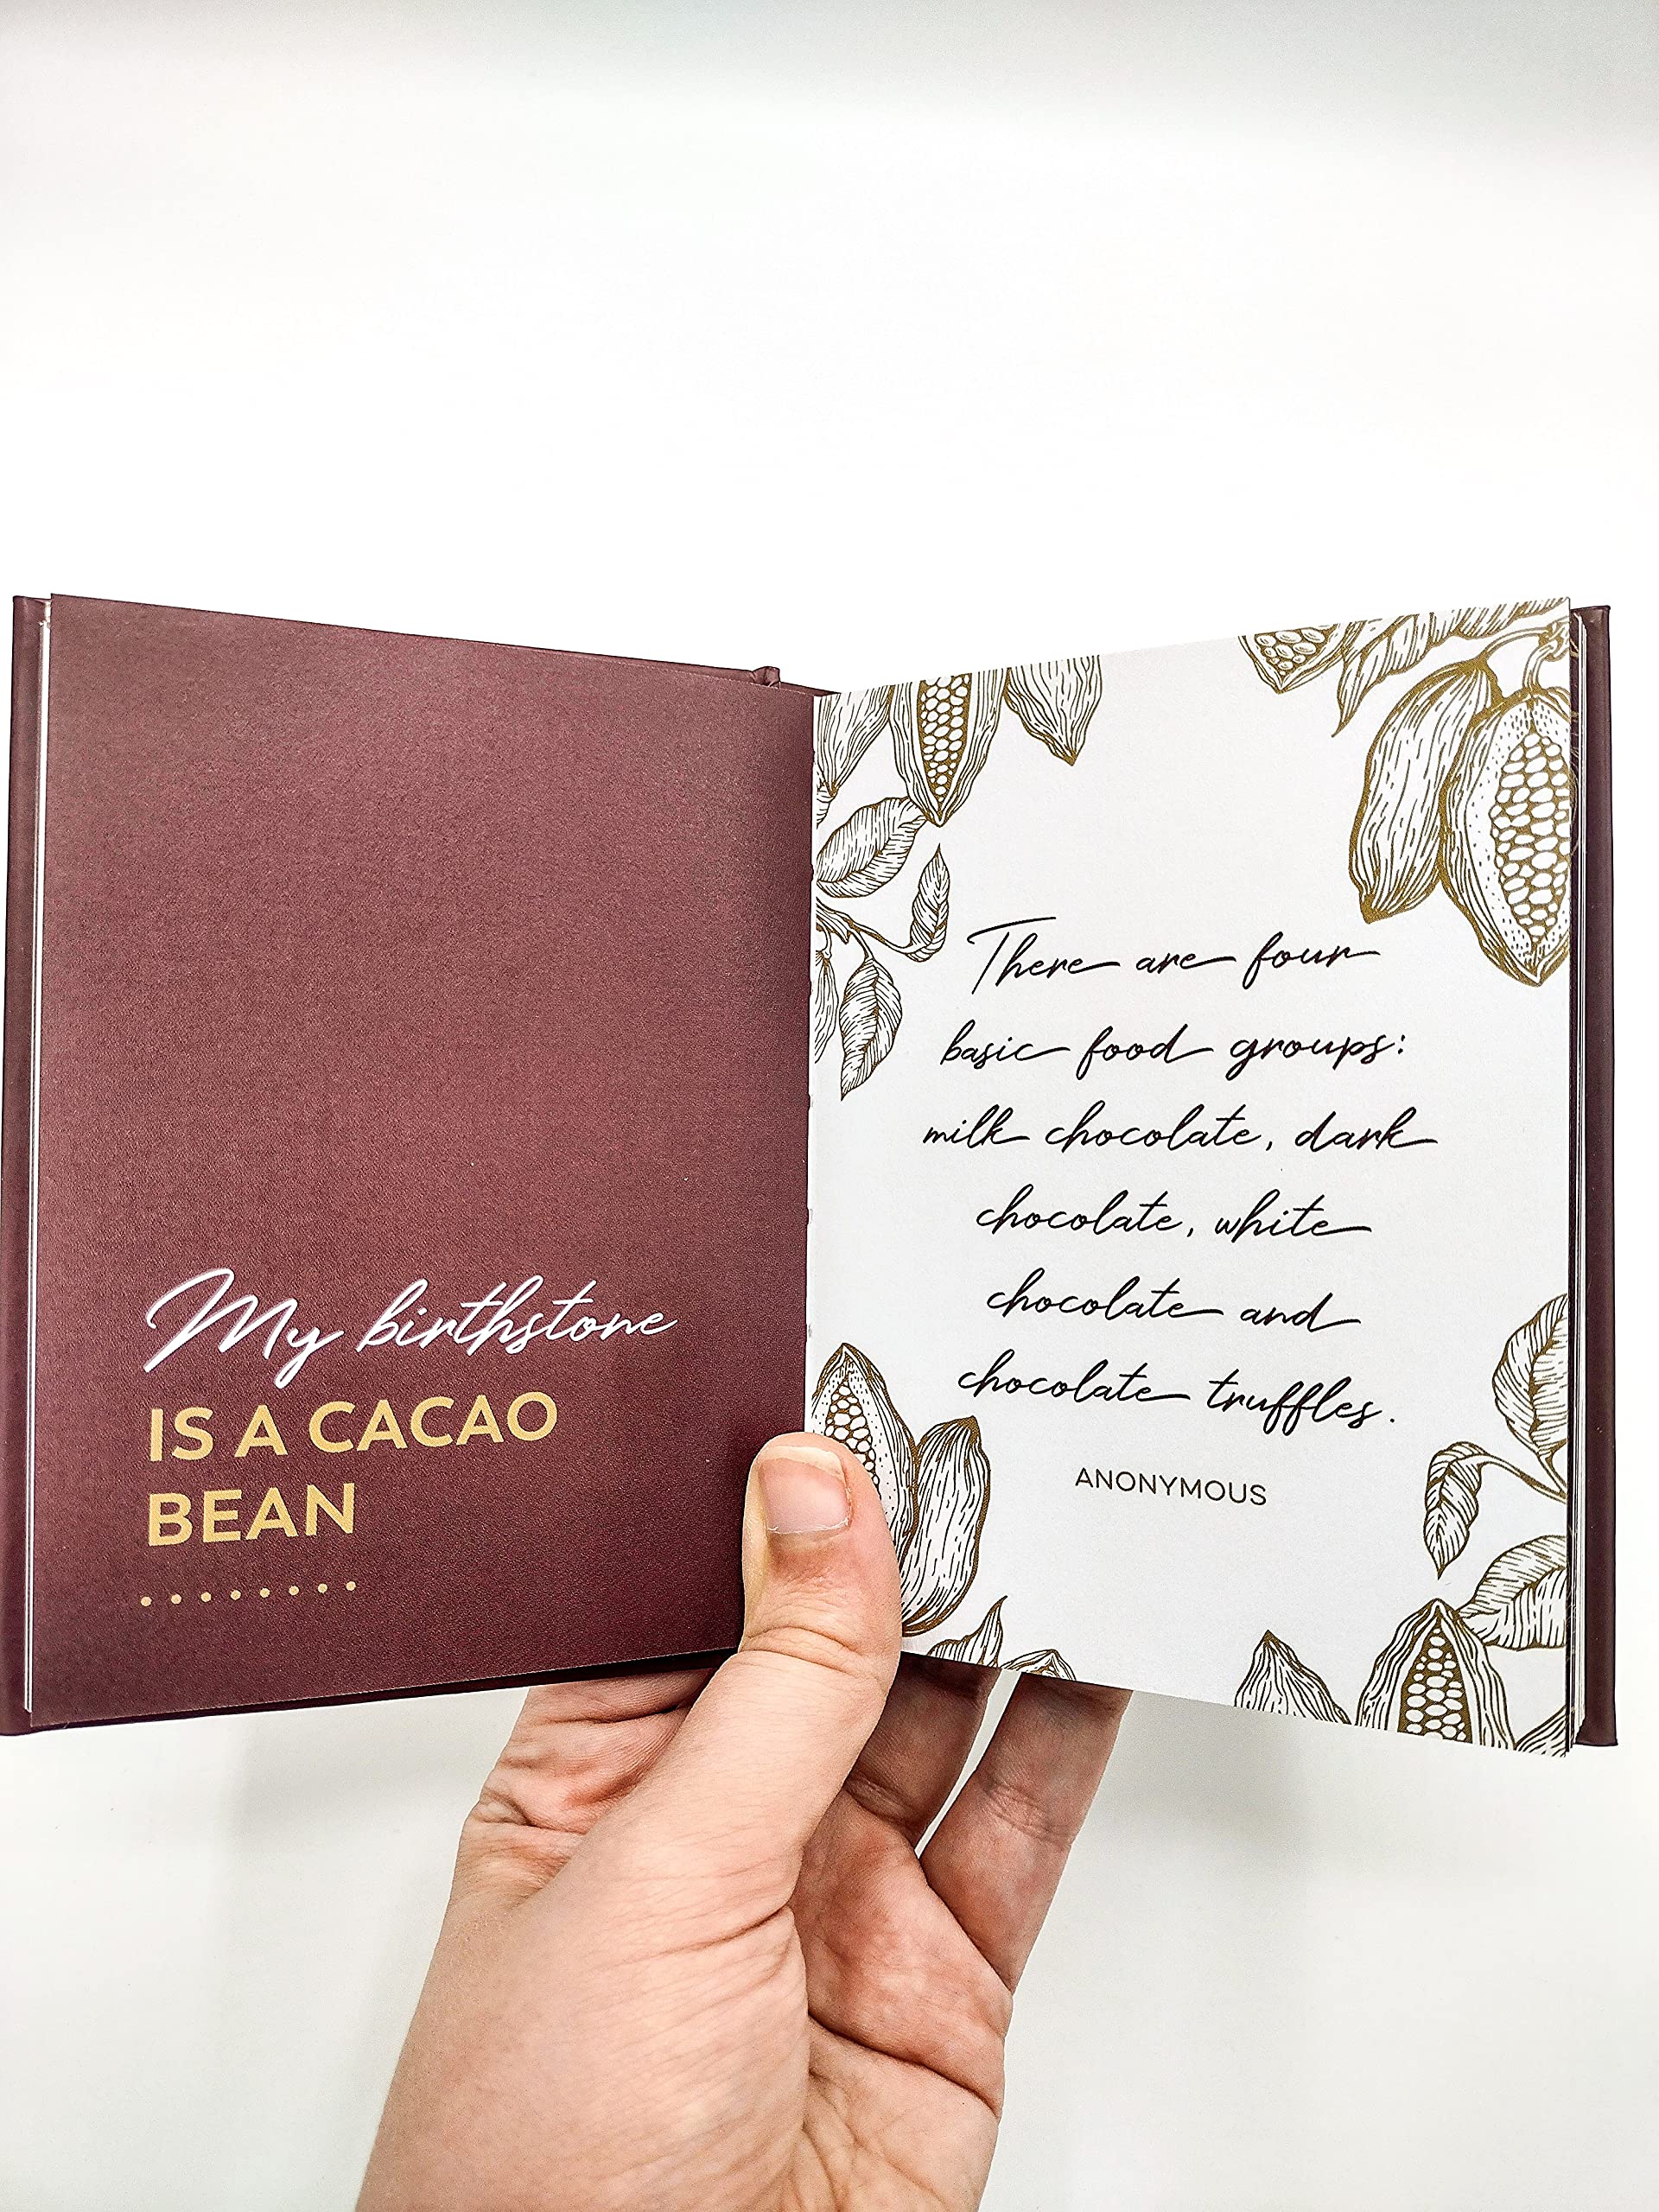 My birthstone
IS A CACAO
BEAN
There are four
basic food groups:
milk chocolate, dark
chocolate, white
chocolate and
chocolate truffles.
ANONYMOUS